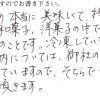 すのでお書き下さい。
本当に美味して、特
和菓子、洋菓子の中で
のことです。冷凍してい
内については、御社の
ていますので、そちらで
頂きます。